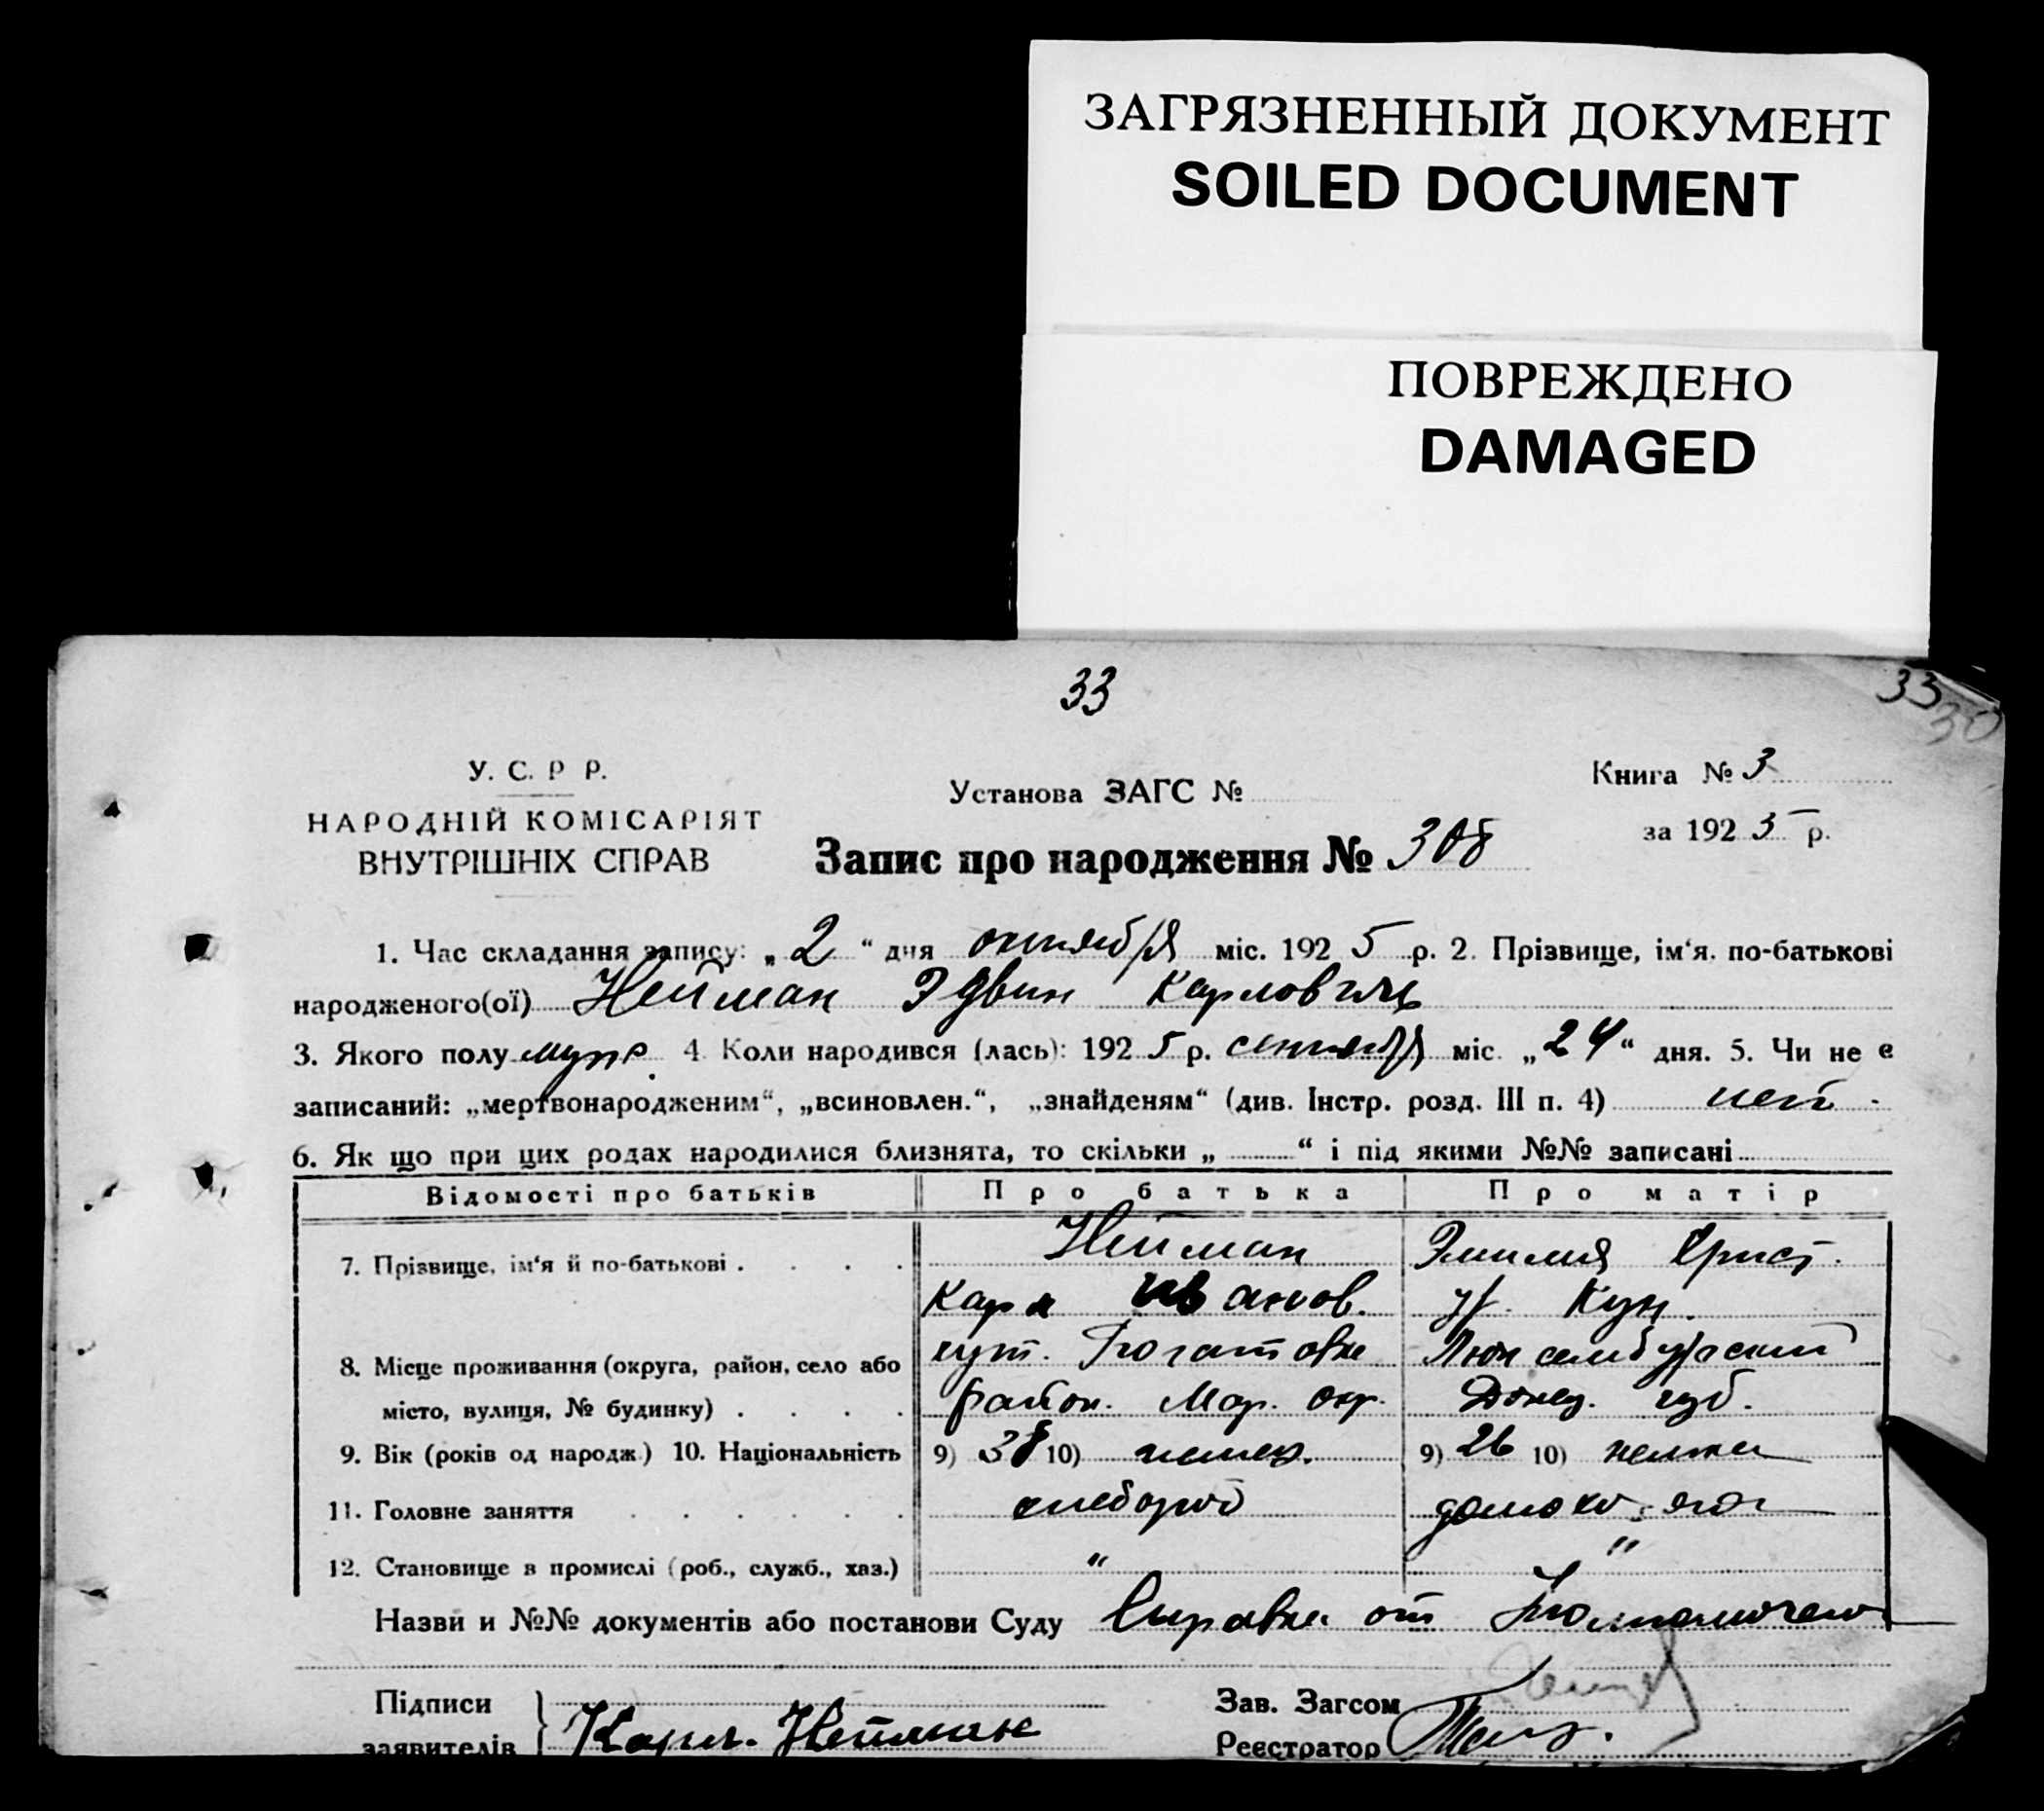 ЗАГРЯЗНЕННЫЙ ДОКУМЕНТ
SOILED DOCUMENT
ПОВРЕЖДЕНО
DAMAGED
33
33
30
У. С. Р Р.
НАРОДНІЙ КОМІСАРІЯТ
ВНУТРІШНІХ СПРАВ
Установа ЗАГС №
Запис про народження № 308
Книга № 3
за 1925 р.
1. Час складання запису: „ 2 “ дня октября міс. 1925 р. 2. Прізвище, ім‘я. по-батькові
народженого(ої) Нейман Эдвин Карлович
3. Якого полу муж. 4 Коли народився (лась): 1925 р. сентября міс. „24“ дня. 5. Чи не є
записаний: „мертвонародженим“, „всиновлен.“, „знайденям“ (див. Інстр. розд. III п. 4) нет
6. Як що при цих родах народилися близнята, то скільки „ “ і під якими №№ записані
Відомості про батьків Про батька Про матір
7. Прізвище, ім‘я й по-батькові . . . . Нейман Эмилия Крист.
Карл Иванов. ур. Кун.
8. Місце проживання (округа, район, село або хут. Люксембургский
місто, вулиця, № будинку) . . . . район. Мар. окр. Донец. губ.
9. Вік (років од народж.) 10. Національність 9) 38 10) немец. 9) 26 10) немка
11. Головне заняття . . . . . . хлебороб домохоз.
12. Становище в промислі (роб., служб., хаз.) " "
Назви и №№ документів або постанови Суду Справка от
Підписи
заявителів } Карл. Нейман
Зав. Загсом
Реєстратор